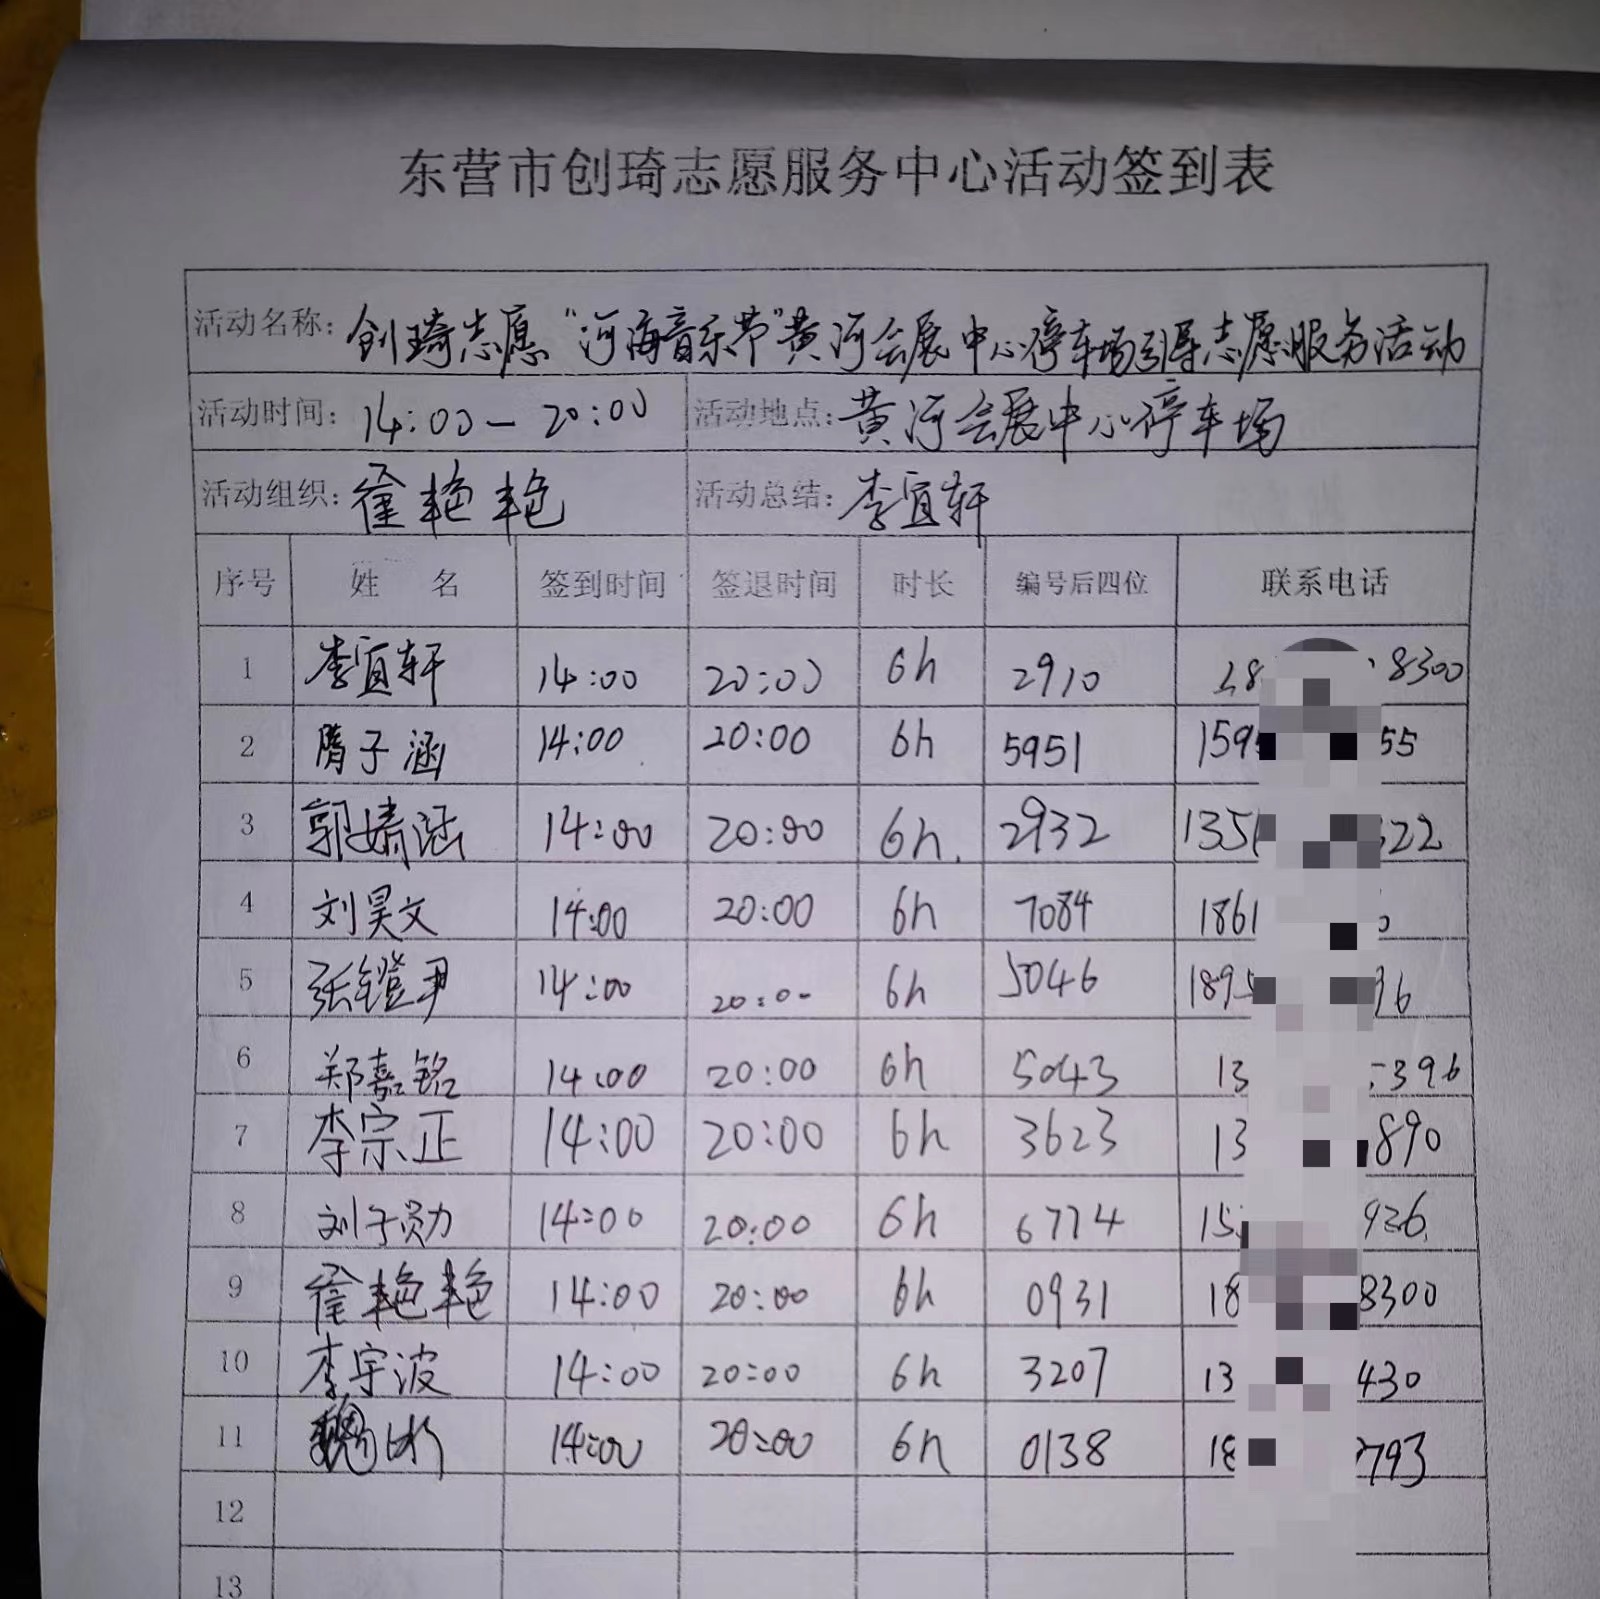 东营市创琦志愿服务中心活动签到表
活动名称: 创琦志愿“河海音乐节”黄河会展中心停车场引导志愿服务活动
活动时间: 14:00-20:00 活动地点: 黄河会展中心停车场
活动组织: 崔艳艳 活动总结: 李宜轩
序号 姓名 签到时间 签退时间 时长 编号后四位 联系电话
1 李宜轩 14:00 20:00 6h 2910 18 8300
2 隋子涵 14:00 20:00 6h 5951 159 55
3 郭婧涵 14:00 20:00 6h. 2932 135 322
4 刘昊文 14:00 20:00 6h 7084 1861
5 张镫尹 14:00 20:00 6h 5046 1895 36
6 郑嘉铭 14:00 20:00 6h 5043 13 396
7 李宗正 14:00 20:00 6h 3623 13 890
8 刘子勋 14:00 20:00 6h 6774 15 926
9 崔艳艳 14:00 20:00 6h 0931 18 8300
10 李宇波 14:00 20:00 6h 3207 13 430
11 魏 14:00 20:00 6h 0138 18 793
12
13